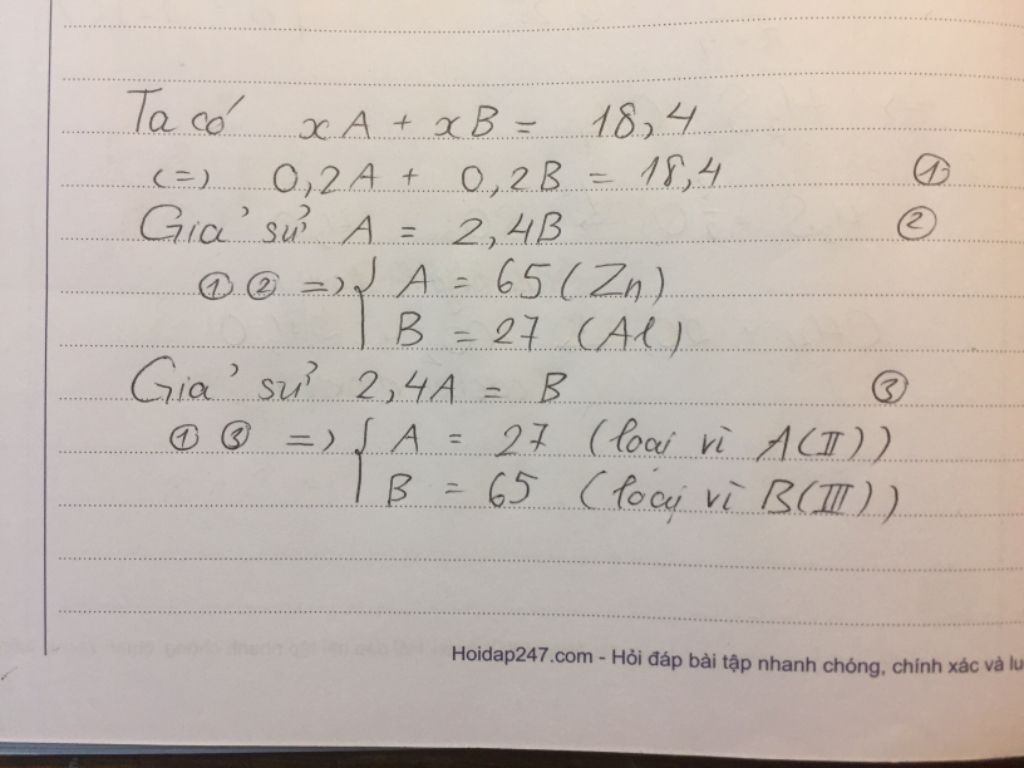 Ta có xA + xB = 18,4
(=) 0,2A + 0,2B = 18,4 ①
Giả sử A = 2,4B ②
① ② => { A = 65 (Zn)
B = 27 (Al)
Giả sử 2,4A = B ③
① ③ => { A = 27 (loại vì A(II))
B = 65 (loại vì B(III))
Hoidap247.com - Hỏi đáp bài tập nhanh chóng, chính xác và lu